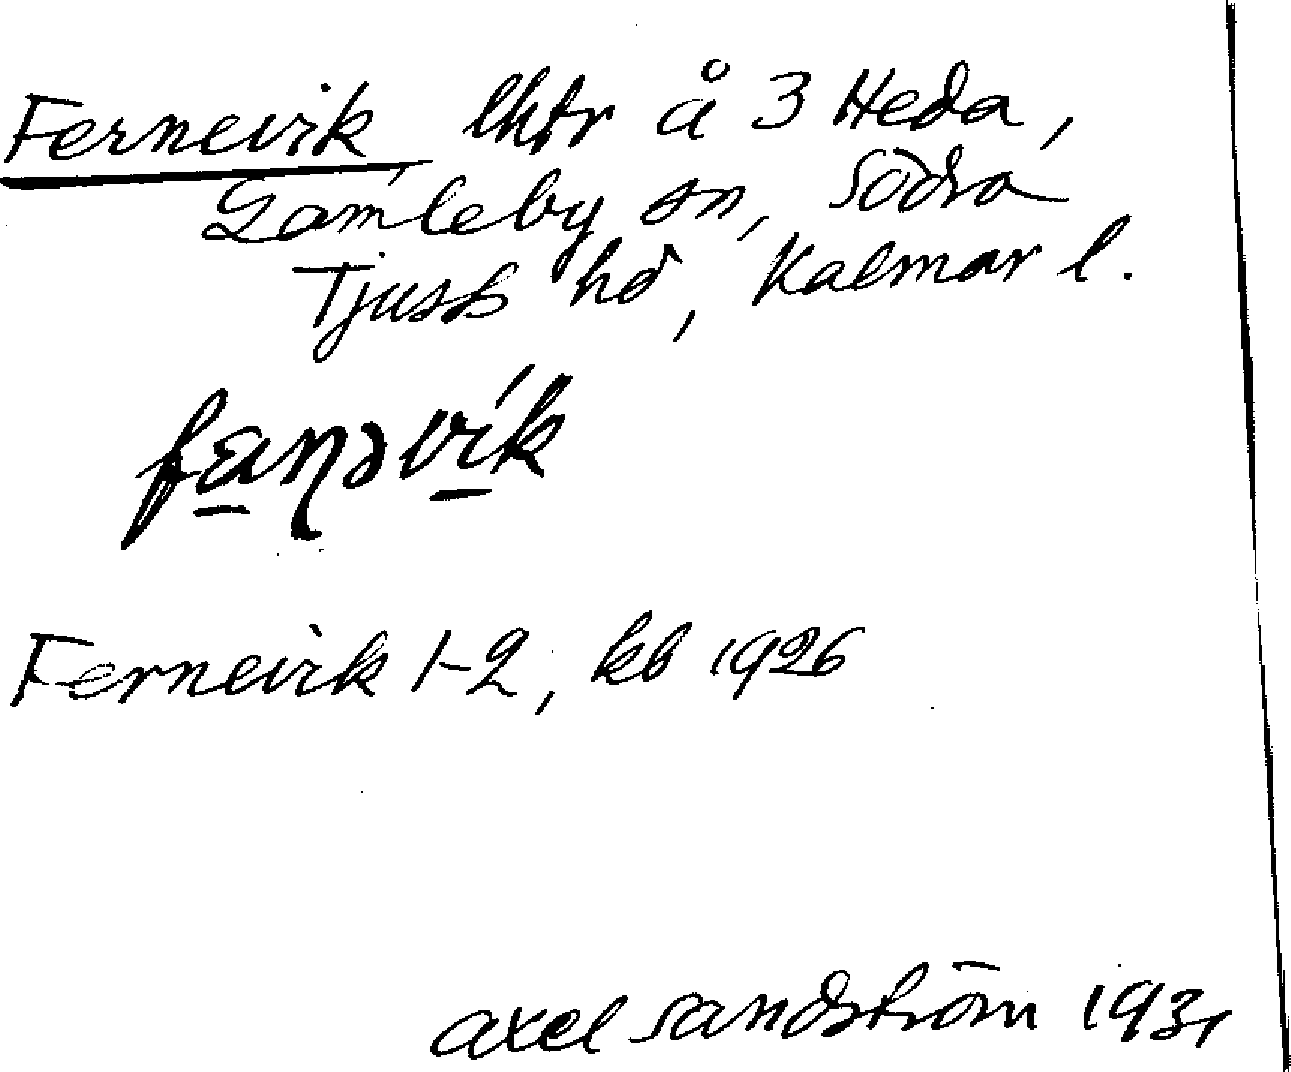 Fernevik lhtr å 3 Heda,
Gamleby sn, Södra
Tjusts hd, Kalmar l.
fæṇəvík
Fernevik 1-2, kb 1926
Axel Sandström 1931